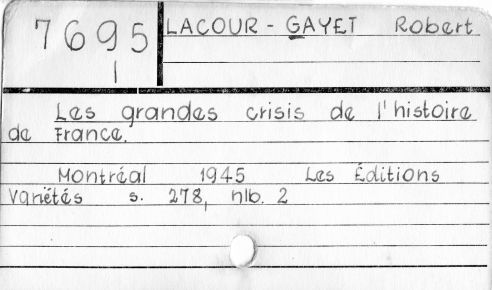 7695 LACOUR - GAYET Robert
1
Les grandes crisis de l'histoire
de France.
Montréal 1945 Les Éditions
Variétés s. 278, nlb. 2